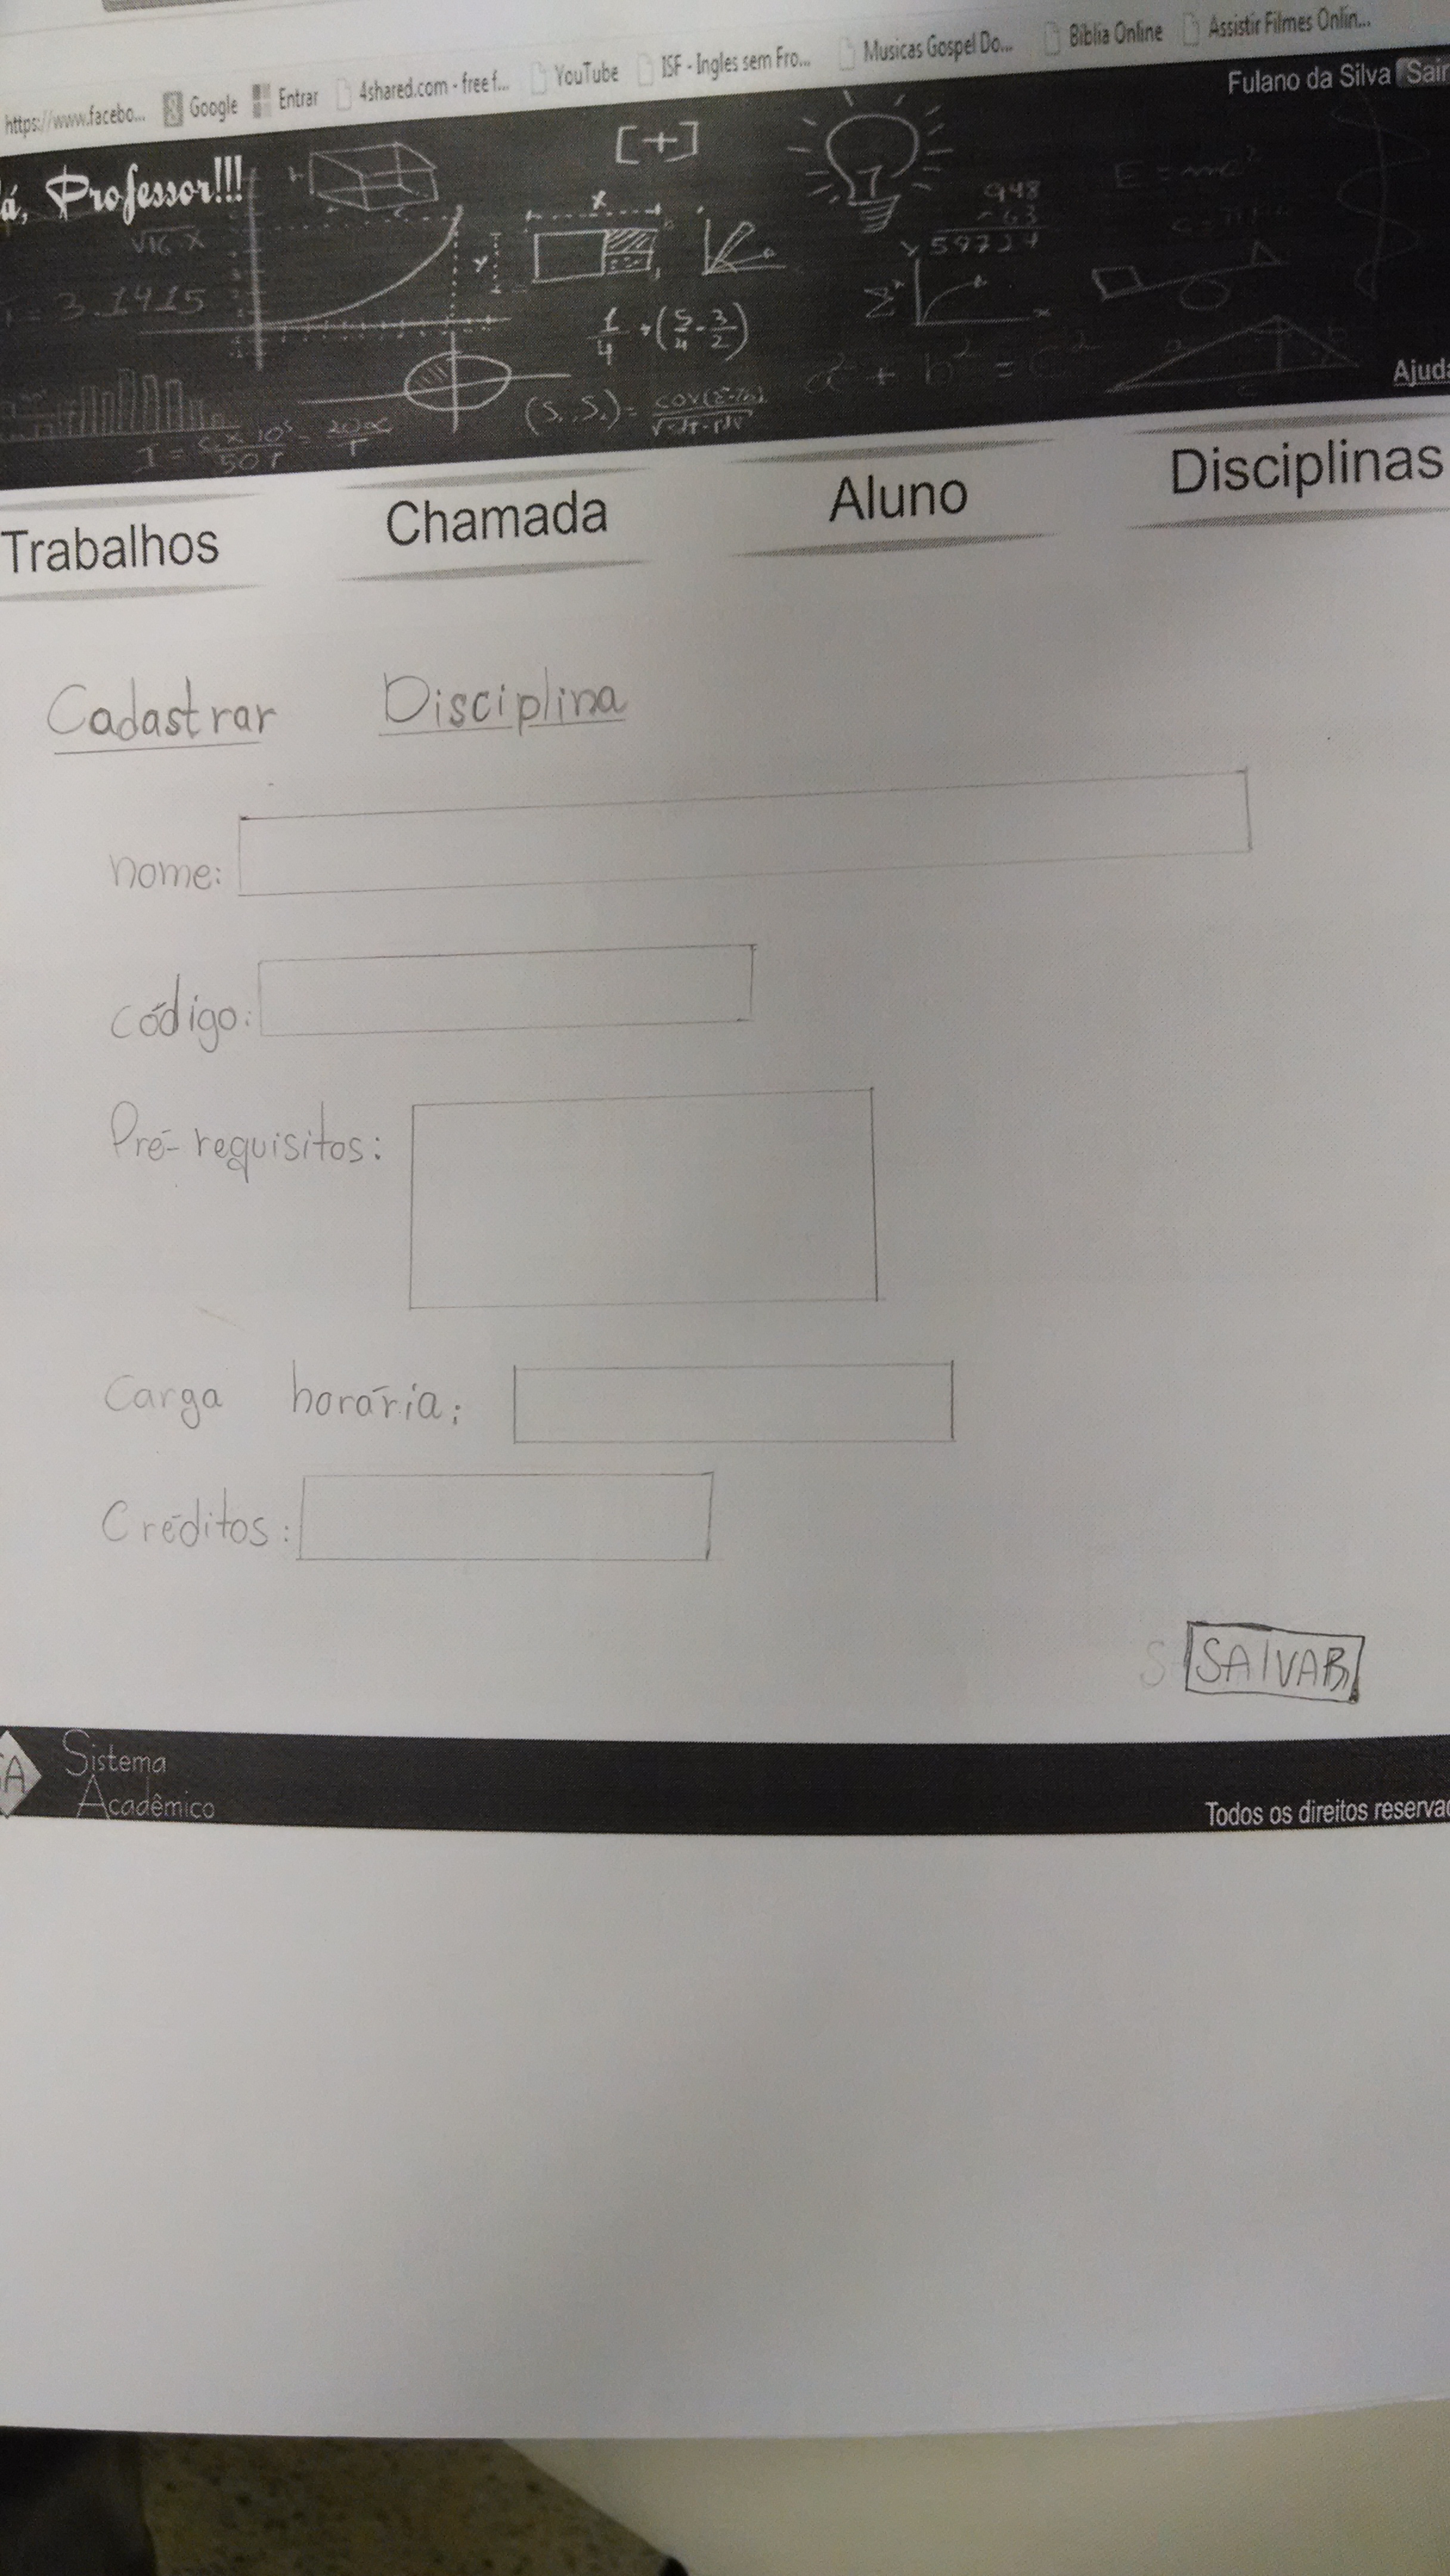 https://www.facebo... Google Entrar 4shared.com - free f... YouTube ISF - Ingles sem Fro... Musicas Gospel Do... Bíblia Online Assistir Filmes Onlin...
Fulano da Silva Sair
á, Professor!!!
[+]
√16.x
x
y
948
63
59724
E = mc²
= 3.1415
1/4 + (5/4 - 3/2)
a² + b² = c²
Ajuda
Trabalhos Chamada Aluno Disciplinas
Cadastrar Disciplina
nome:
código:
Pré-requisitos:
Carga horária:
Créditos:
S SALVAR
A Sistema
Acadêmico
Todos os direitos reserva